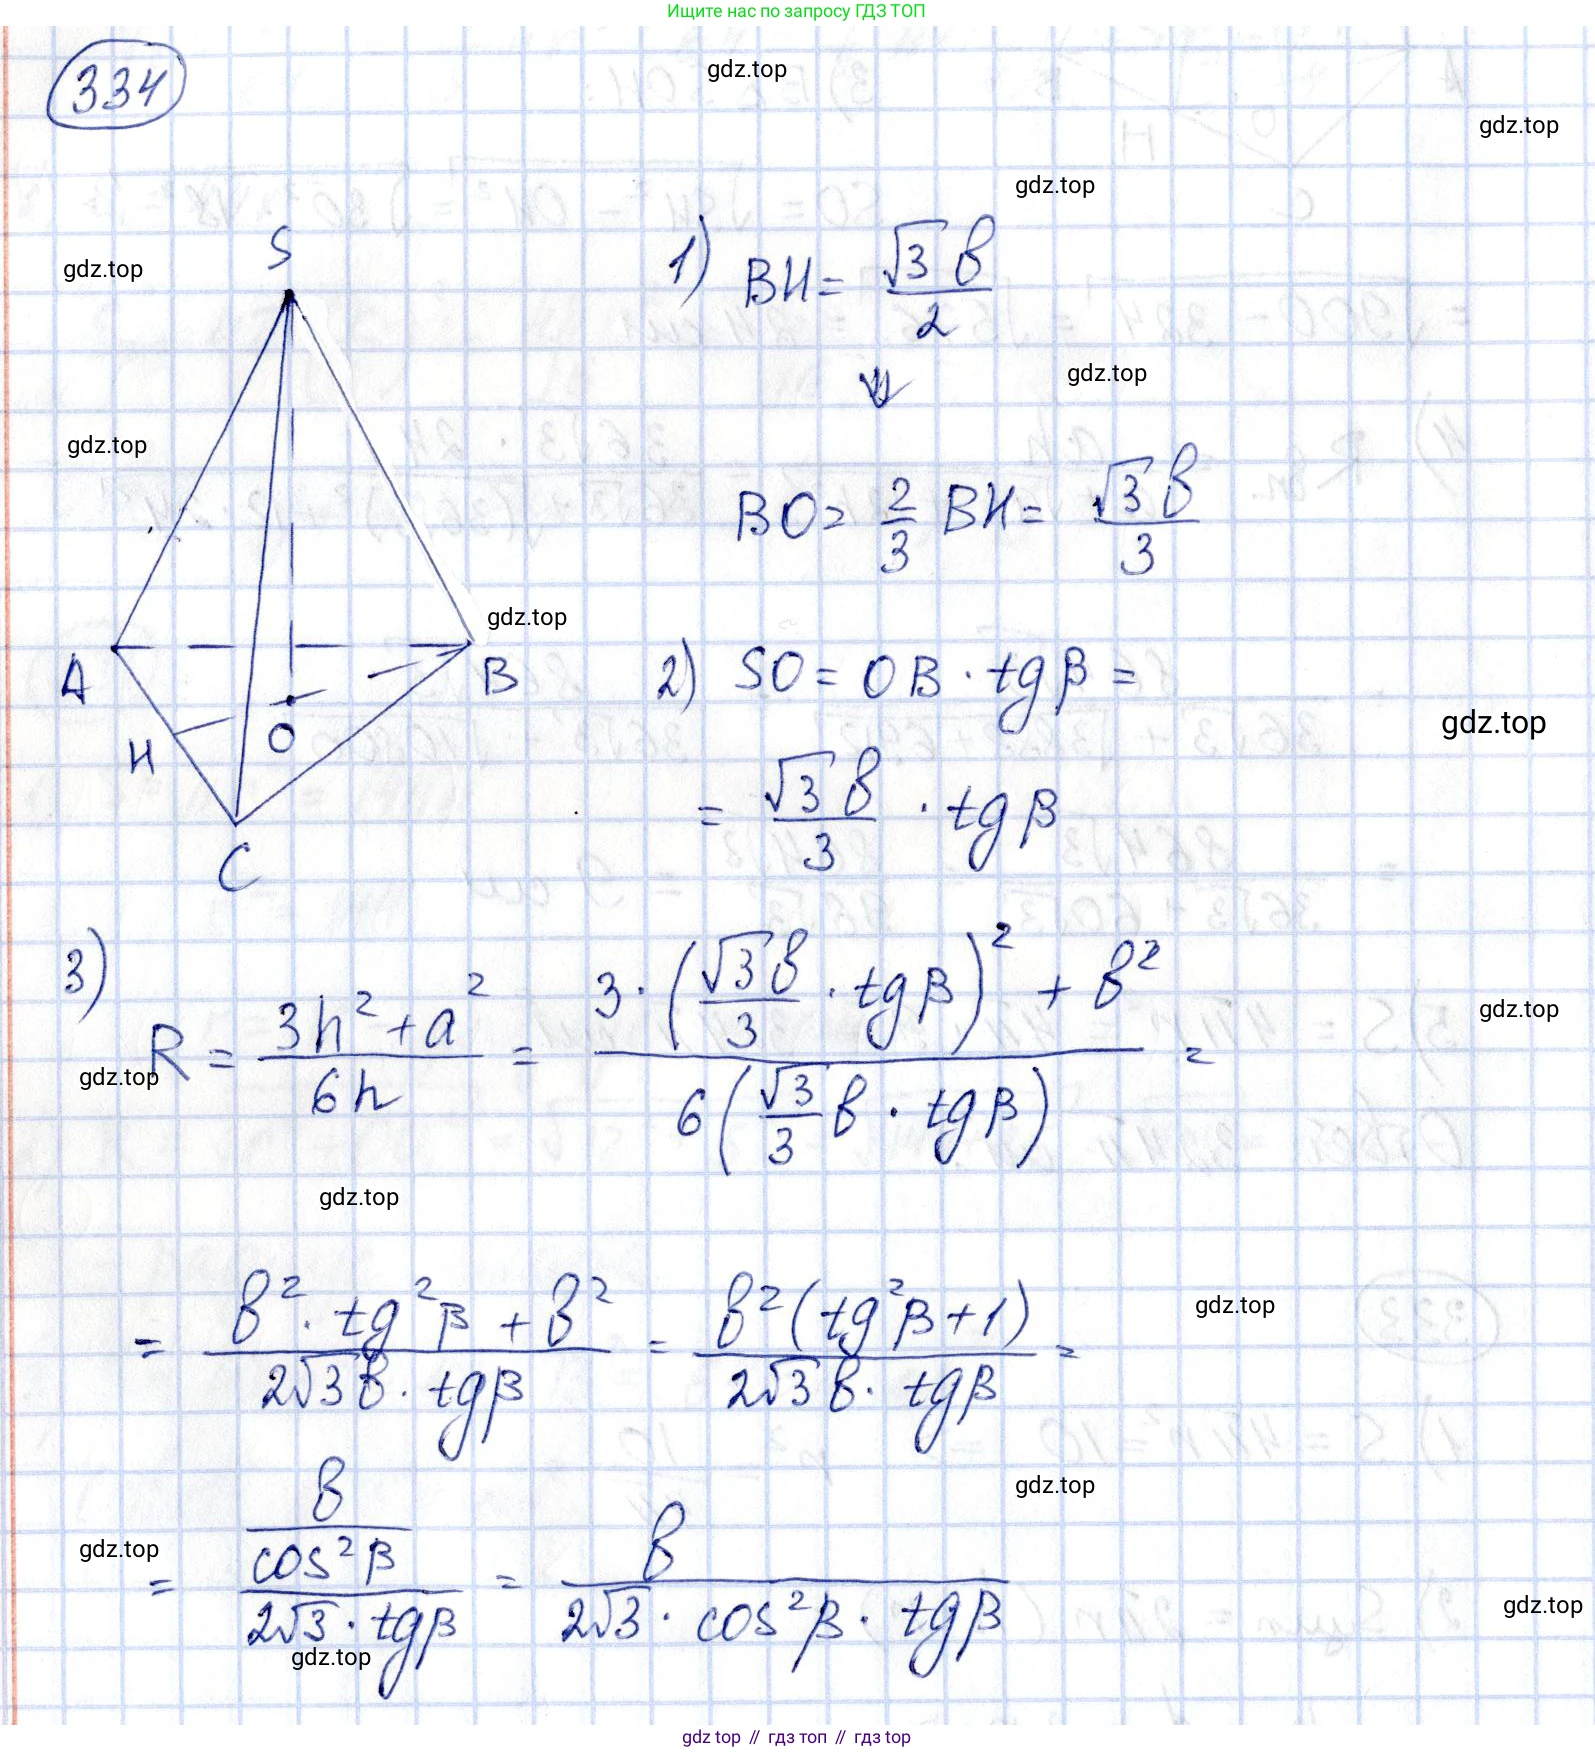 Ищите нас по запросу ГДЗ ТОП
334
gdz.top
gdz.top
gdz.top
S
gdz.top
1) BH = √3 b / 2
⇓
gdz.top
gdz.top
BO = 2/3 BH = √3 b / 3
gdz.top
A
B
H
O
C
2) SO = OB · tg β =
gdz.top
= √3 b / 3 · tg β
3) R = (3h² + a²) / 6h = (3 · (√3 b / 3 · tg β)² + b²) / 6(√3/3 b · tg β) =
gdz.top
gdz.top
gdz.top
gdz.top
= (b² · tg² β + b²) / 2√3 b · tg β = b² (tg² β + 1) / 2√3 b · tg β =
gdz.top
gdz.top
= (b / cos² β) / 2√3 · tg β = b / 2√3 · cos² β · tg β
gdz.top
gdz.top
gdz.top // гдз топ // гдз top